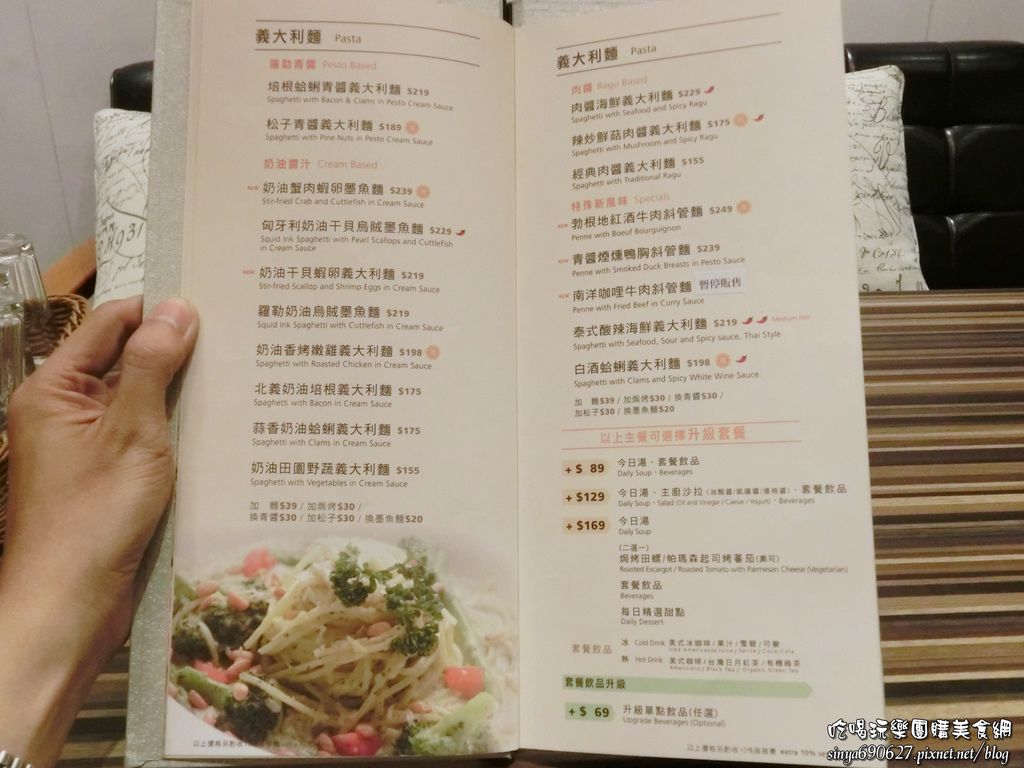 義大利麵 Pasta
羅勒青醬 Pesto Based
培根蛤蜊青醬義大利麵 $219
Spaghetti with Bacon & Clams in Pesto Cream Sauce
松子青醬義大利麵 $189
Spaghetti with Pine Nuts in Pesto Cream Sauce
奶油醬汁 Cream Based
NEW 奶油蟹肉蝦卵墨魚麵 $239
Stir-fried Crab and Cuttlefish in Cream Sauce
匈牙利奶油干貝烏賊墨魚麵 $229
Squid Ink Spaghetti with Pearl Scallops and Cuttlefish
in Cream Sauce
NEW 奶油干貝蝦卵義大利麵 $219
Stir-fried Scallop and Shrimp Eggs in Cream Sauce
羅勒奶油烏賊墨魚麵 $219
Squid Ink Spaghetti with Cuttlefish in Cream Sauce
奶油香烤嫩雞義大利麵 $198
Spaghetti with Roasted Chicken in Cream Sauce
北義奶油培根義大利麵 $175
Spaghetti with Bacon in Cream Sauce
蒜香奶油蛤蜊義大利麵 $175
Spaghetti with Clams in Cream Sauce
奶油田園野蔬義大利麵 $155
Spaghetti with Vegetables in Cream Sauce
加 麵$39 / 加焗烤$30 /
換青醬$30 / 加松子$30 / 換墨魚麵$20
以上價格另酌收10%服務費
義大利麵 Pasta
肉醬 Ragu Based
肉醬海鮮義大利麵 $229
Spaghetti with Seafood and Spicy Ragu
辣炒鮮菇肉醬義大利麵 $175
Spaghetti with Mushroom and Spicy Ragu
經典肉醬義大利麵 $155
Spaghetti with Traditional Ragu
特殊新風味 Specials
NEW 勃根地紅酒牛肉斜管麵 $249
Penne with Boeuf Bourguignon
NEW 青醬煙燻鴨胸斜管麵 $239
Penne with Smoked Duck Breasts in Pesto Sauce
NEW 南洋咖哩牛肉斜管麵 暫停販售
Penne with Fried Beef in Curry Sauce
泰式酸辣海鮮義大利麵 $219 Medium Hot
Spaghetti with Seafood, Sour and Spicy sauce, Thai Style
白酒蛤蜊義大利麵 $198
Spaghetti with Clams and Spicy White Wine Sauce
加 麵$39 / 加焗烤$30 / 換青醬$30 /
加松子$30 / 換墨魚麵$20
以上主餐可選擇升級套餐
+$ 89 今日湯、套餐飲品
Daily Soup、Beverages
+$129 今日湯、主廚沙拉(油醋醬/凱薩醬/優格醬)、套餐飲品
Daily Soup、Salad (Oil and Vinegar / Caesar / Yogurt)、Beverages
+$169 今日湯
Daily Soup
(二選一)
焗烤田螺/帕瑪森起司烤蕃茄(素可)
Roasted Escargot / Roasted Tomato with Parmesan Cheese (Vegetarian)
套餐飲品
Beverages
每日精選甜點
Daily Dessert
套餐飲品 冰 Cold Drink 美式冰咖啡/果汁/雪碧/可樂
Iced Americano/Juice/Sprite/Coca-Cola
熱 Hot Drink 美式咖啡/台灣日月紅茶/有機綠茶
Americano/Black Tea/Organic Green Tea
套餐飲品升級
+$ 69 升級單點飲品(任選)
Upgrade Beverages (Optional)
以上價格另酌收10%服務費 extra 10%
吃喝玩樂團購美食網
sinya690627.pixnet.net/blog